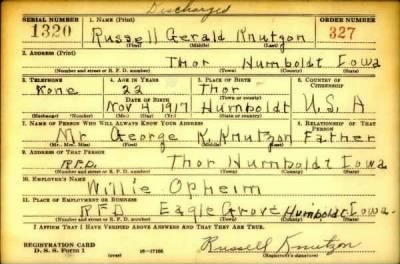 Discharged
SERIAL NUMBER 1. NAME (Print) ORDER NUMBER
1320 Russell Gerald Knutzon 327
(First) (Middle) (Last)
2. ADDRESS (Print)
Thor Humboldt Iowa
(Number and street or R. F. D. number) (Town) (County) (State)
3. TELEPHONE 4. AGE IN YEARS 5. PLACE OF BIRTH 6. COUNTRY OF CITIZENSHIP
None 22 Thor
DATE OF BIRTH (Town or county)
Nov 4 1917 Humboldt U.S.A
(Mo.) (Day) (Yr.) (State or country)
7. NAME OF PERSON WHO WILL ALWAYS KNOW YOUR ADDRESS 8. RELATIONSHIP OF THAT PERSON
Mr George K. Knutzon Father
(Mr., Mrs., Miss) (First) (Middle) (Last)
9. ADDRESS OF THAT PERSON
R.F.D. Thor Humboldt Iowa
(Number and street or R. F. D. number) (Town) (County) (State)
10. EMPLOYER'S NAME
Willie Opheim
11. PLACE OF EMPLOYMENT OR BUSINESS
RFD Eagle Grove Humboldt Iowa
(Number and street or R. F. D. number) (Town) (County) (State)
I AFFIRM THAT I HAVE VERIFIED ABOVE ANSWERS AND THAT THEY ARE TRUE.
REGISTRATION CARD
D. S. S. Form 1 (over) 16-17105 Russell Knutzon
(Registrant's signature)